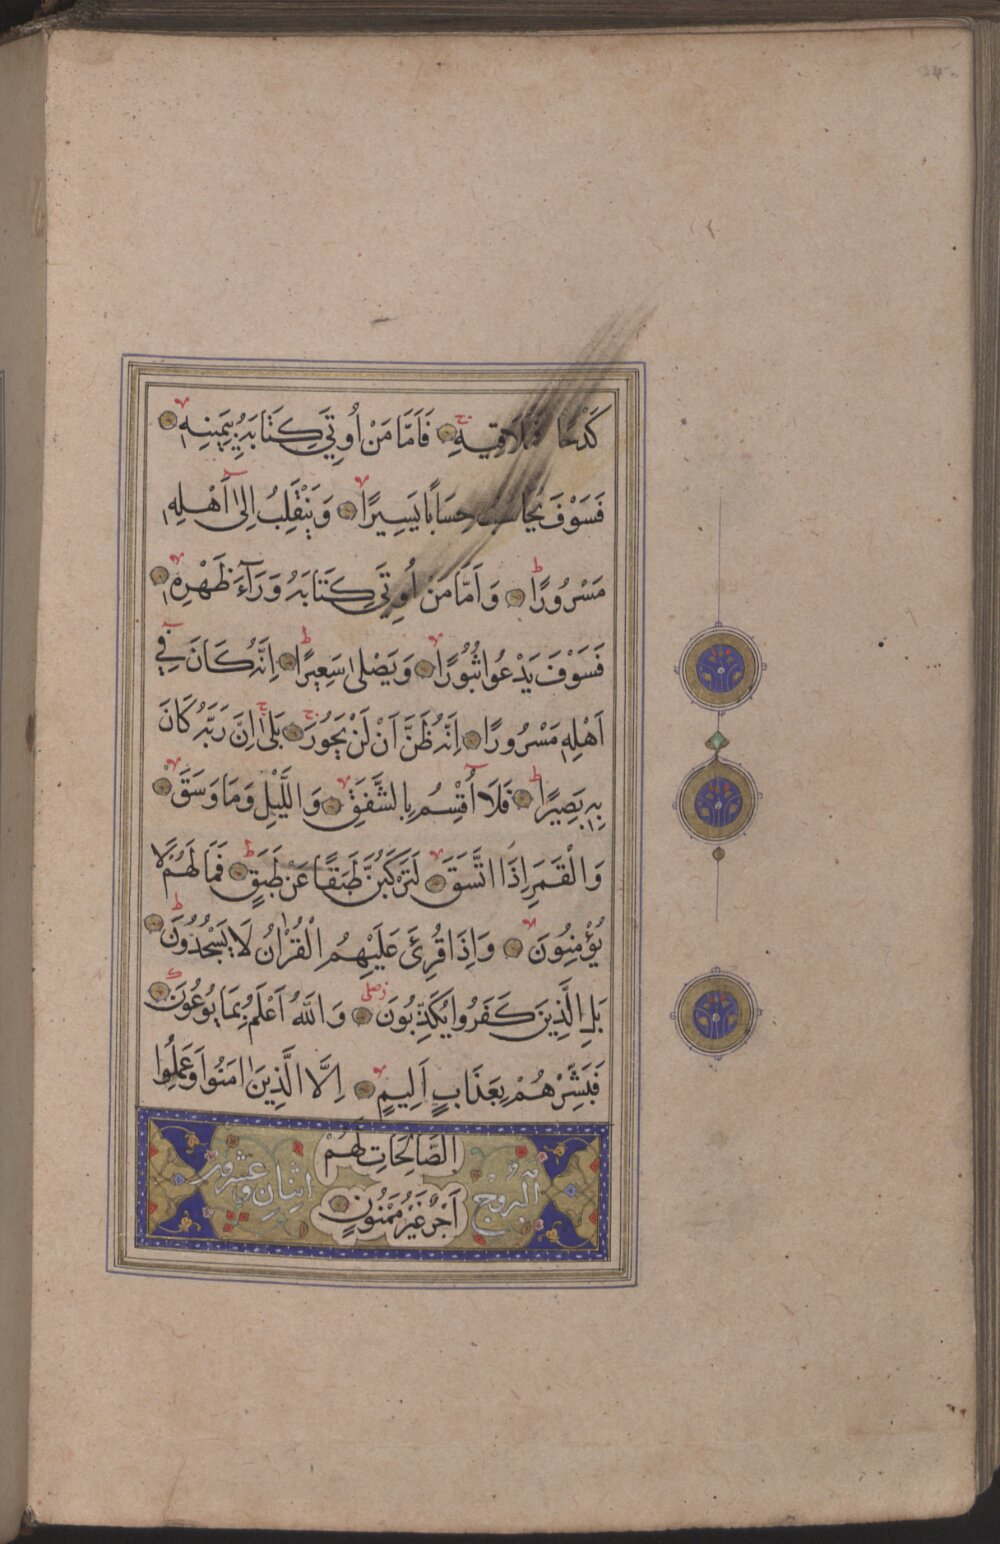 كَدْحًا فَمُلَاقِيهِ فَاَمَّا مَنْ اُوتِيَ كِتَابَهُ بِيَمِينِهِ
فَسَوْفَ يُحَاسَبُ حِسَابًا يَسِيرًا وَيَنْقَلِبُ اِلٰى اَهْلِهِ
مَسْرُورًا وَاَمَّا مَنْ اُوتِيَ كِتَابَهُ وَرَآءَ ظَهْرِهِ
فَسَوْفَ يَدْعُوا ثُبُورًا وَيَصْلٰى سَعِيرًا اِنَّهُ كَانَ فِي
اَهْلِهِ مَسْرُورًا اِنَّهُ ظَنَّ اَنْ لَنْ يَحُورَ بَلٰى اِنَّ رَبَّهُ كَانَ
بِهِ بَصِيرًا فَلَا اُقْسِمُ بِالشَّفَقِ وَاللَّيْلِ وَمَا وَسَقَ
وَالْقَمَرِ اِذَا اتَّسَقَ لَتَرْكَبُنَّ طَبَقًا عَنْ طَبَقٍ فَمَا لَهُمْ لَا
يُؤْمِنُونَ وَاِذَا قُرِئَ عَلَيْهِمُ الْقُرْاٰنُ لَا يَسْجُدُونَ
بَلِ الَّذِينَ كَفَرُوا يُكَذِّبُونَ وَاللّٰهُ اَعْلَمُ بِمَا يُوعُونَ
فَبَشِّرْهُمْ بِعَذَابٍ اَلِيمٍ اِلَّا الَّذِينَ اٰمَنُوا وَعَمِلُوا
الصَّالِحَاتِ لَهُمْ
اَجْرٌ غَيْرُ مَمْنُونٍ
البروج اثنان وعشرون